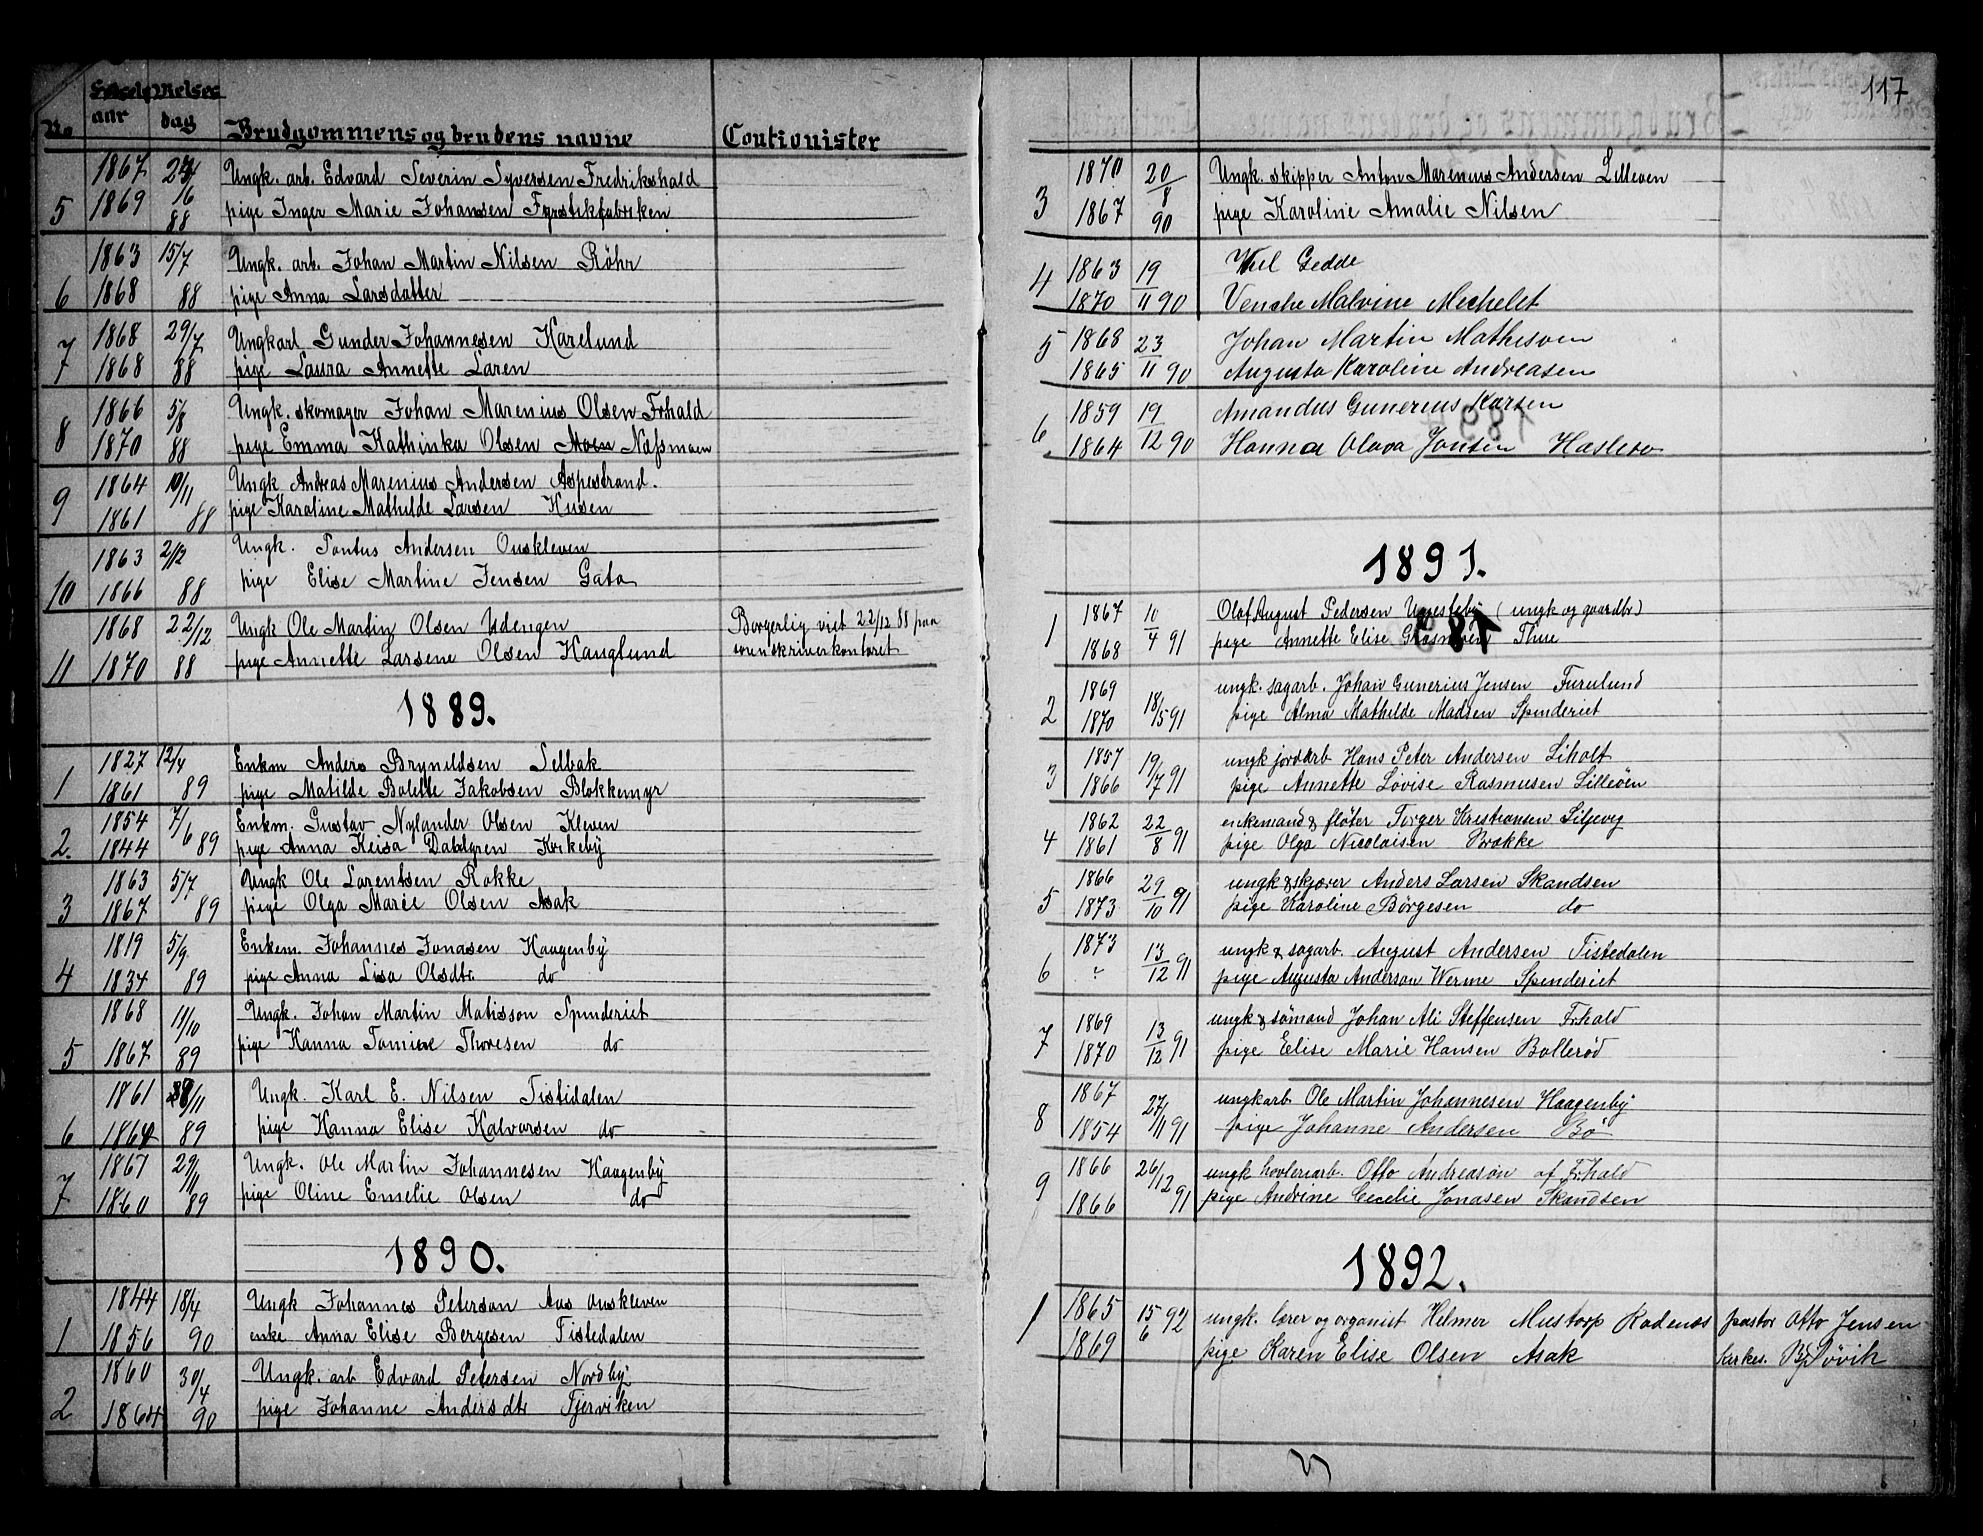 No Fødsels aar Vielses dag Brudgommens og brudens navne Coutionister
1867 24/6 Ungk. arb. Edvard Severin Syversen Fredrikshald
5 1869 88 pige Inger Marie Johansen Fyrstikfabriken
1863 15/7 Ungk. arb. Johan Martin Nilsen Röhr
6 1868 88 pige Anna Larsdatter
1868 29/7 Ungkarl Gunder Johannesen Karelund
7 1868 88 pige Laura Annette Laren
1866 5/8 Ungk. skomager Johan Marenius Olsen Frhald
8 1870 88 pige Emma Kathinka Olsen Moen Næssmoen
1864 10/11 Ungk Andreas Marenius Andersen Aspestrand.
9 1861 88 pige Karoline Mathilde Larsen Husen
1863 2/12 Ungk. Pontus Andersen Ouskleven
10 1866 88 pige Elise Martine Jensen Gata
1868 22/12 Ungk Ole Martin Olsen Udengen Borgerlig viet 22/12 88 paa
11 1870 88 pige Annette Larsene Olsen Hauglund sorenskriverkontoret
1889.
1827 12/4 Enkm Anders Brynildsen Selbak
1 1861 89 pige Matilde Bolette Jakobsen Blokkemyr
1854 7/6 Enkm. Gustav Nylander Olsen Kleven
2. 1844 89 pige Anna Keisa Dahlgren Kirkeby
1863 5/7 Ungk Ole Larentsen Rokke
3 1867 89 pige Olga Marie Olsen Asak
1819 5/9 Enkem. Johannes Jonasen Haagenby
4 1834 89 pige Anna Lisa Olsdtr. do
1868 11/10 Ungk. Johan Martin Matisson Spinderiet
5 1867 89 pige Hanna Tomine Thoresen do
1861 /11 Ungk. Karl E. Nilsen Tistedalen
6 1864 89 pige Hanna Elise Halvorsen do
1867 29/11 Ungk. Ole Martin Johannesen Haagenby
7 1860 89 pige Oline Emelie Olsen do
1890.
1844 18/4 Ungk Johannes Peterson Aas Ouskleven
1 1856 90 enke Anna Elise Bergesen Tistedalen
1860 30/4 Ungk. arb Edvard Petersen Nordby
2 1864 90 pige Johanne Andersdtr Tjerviken
117
1870 20/8 Ungk. skipper Anton Marenius Andersen Lilleven
3 1867 90 pige Karoline Amalie Nilsen
4 1863 19 Gedde
1870 11 90 Venche Malvine Mechelet
5 1868 23 Johan Martin Mathisen
1865 11 90 Augusta Karoline Andreasen
1859 19 Amandus Gunerius Karsen
6 1864 12 90 Hanna Olava Jonsen Hasleto
1891.
1867 10 Olaf August Pedersen Ugesteby (ungk og gaardbr)
1 1868 4 91 pige Annette Elise Grasmoen Thue
1869 18/5 91 ungk. sagarb. Johan Gunerius Jensen Furulund
2 1870 pige Alma Mathilde Madsen Spinderiet
1857 19/7 91 ungk jordarb Hans Peter Andersen Liholt
3 1866 pige Annette Lovise Rasmusen Lilleöen
1862 22 enkemand & fløter Torger Kristiansen Liljevej
4 1861 8 91 pige Olga Nicolaisen Brække
1866 29 ungk & skjærer Anders Larsen Skandsen
5 1873 10 91 pige Karoline Börgesen do
1873 13 ungk & sagarb. August Andersen Tistedalen
6 " 12 91 pige Augusta Anderson Werme Spinderiet
1869 13 ungk & sömand Johan Ali Steffensen Frhald
7 1870 12 91 pige Elise Marie Hansen Bollerød
1867 27/11 91 ungkarb Ole Martin Johannesen Haagenby
8 1854 pige Johanne Andersen Bö
1866 26/12 91 ungk hövleriarb. Otto Andreason af Frhald
9 1866 pige Andrine Cecelie Jonasen Skandsen
1892.
1 1865 15 92 ungk. lærer og organist Helmer Mustorp Rødenæs pastor Otto Jensen
1869 6 pige Karen Elise Olsen Asak kirkes. Bj Jövik